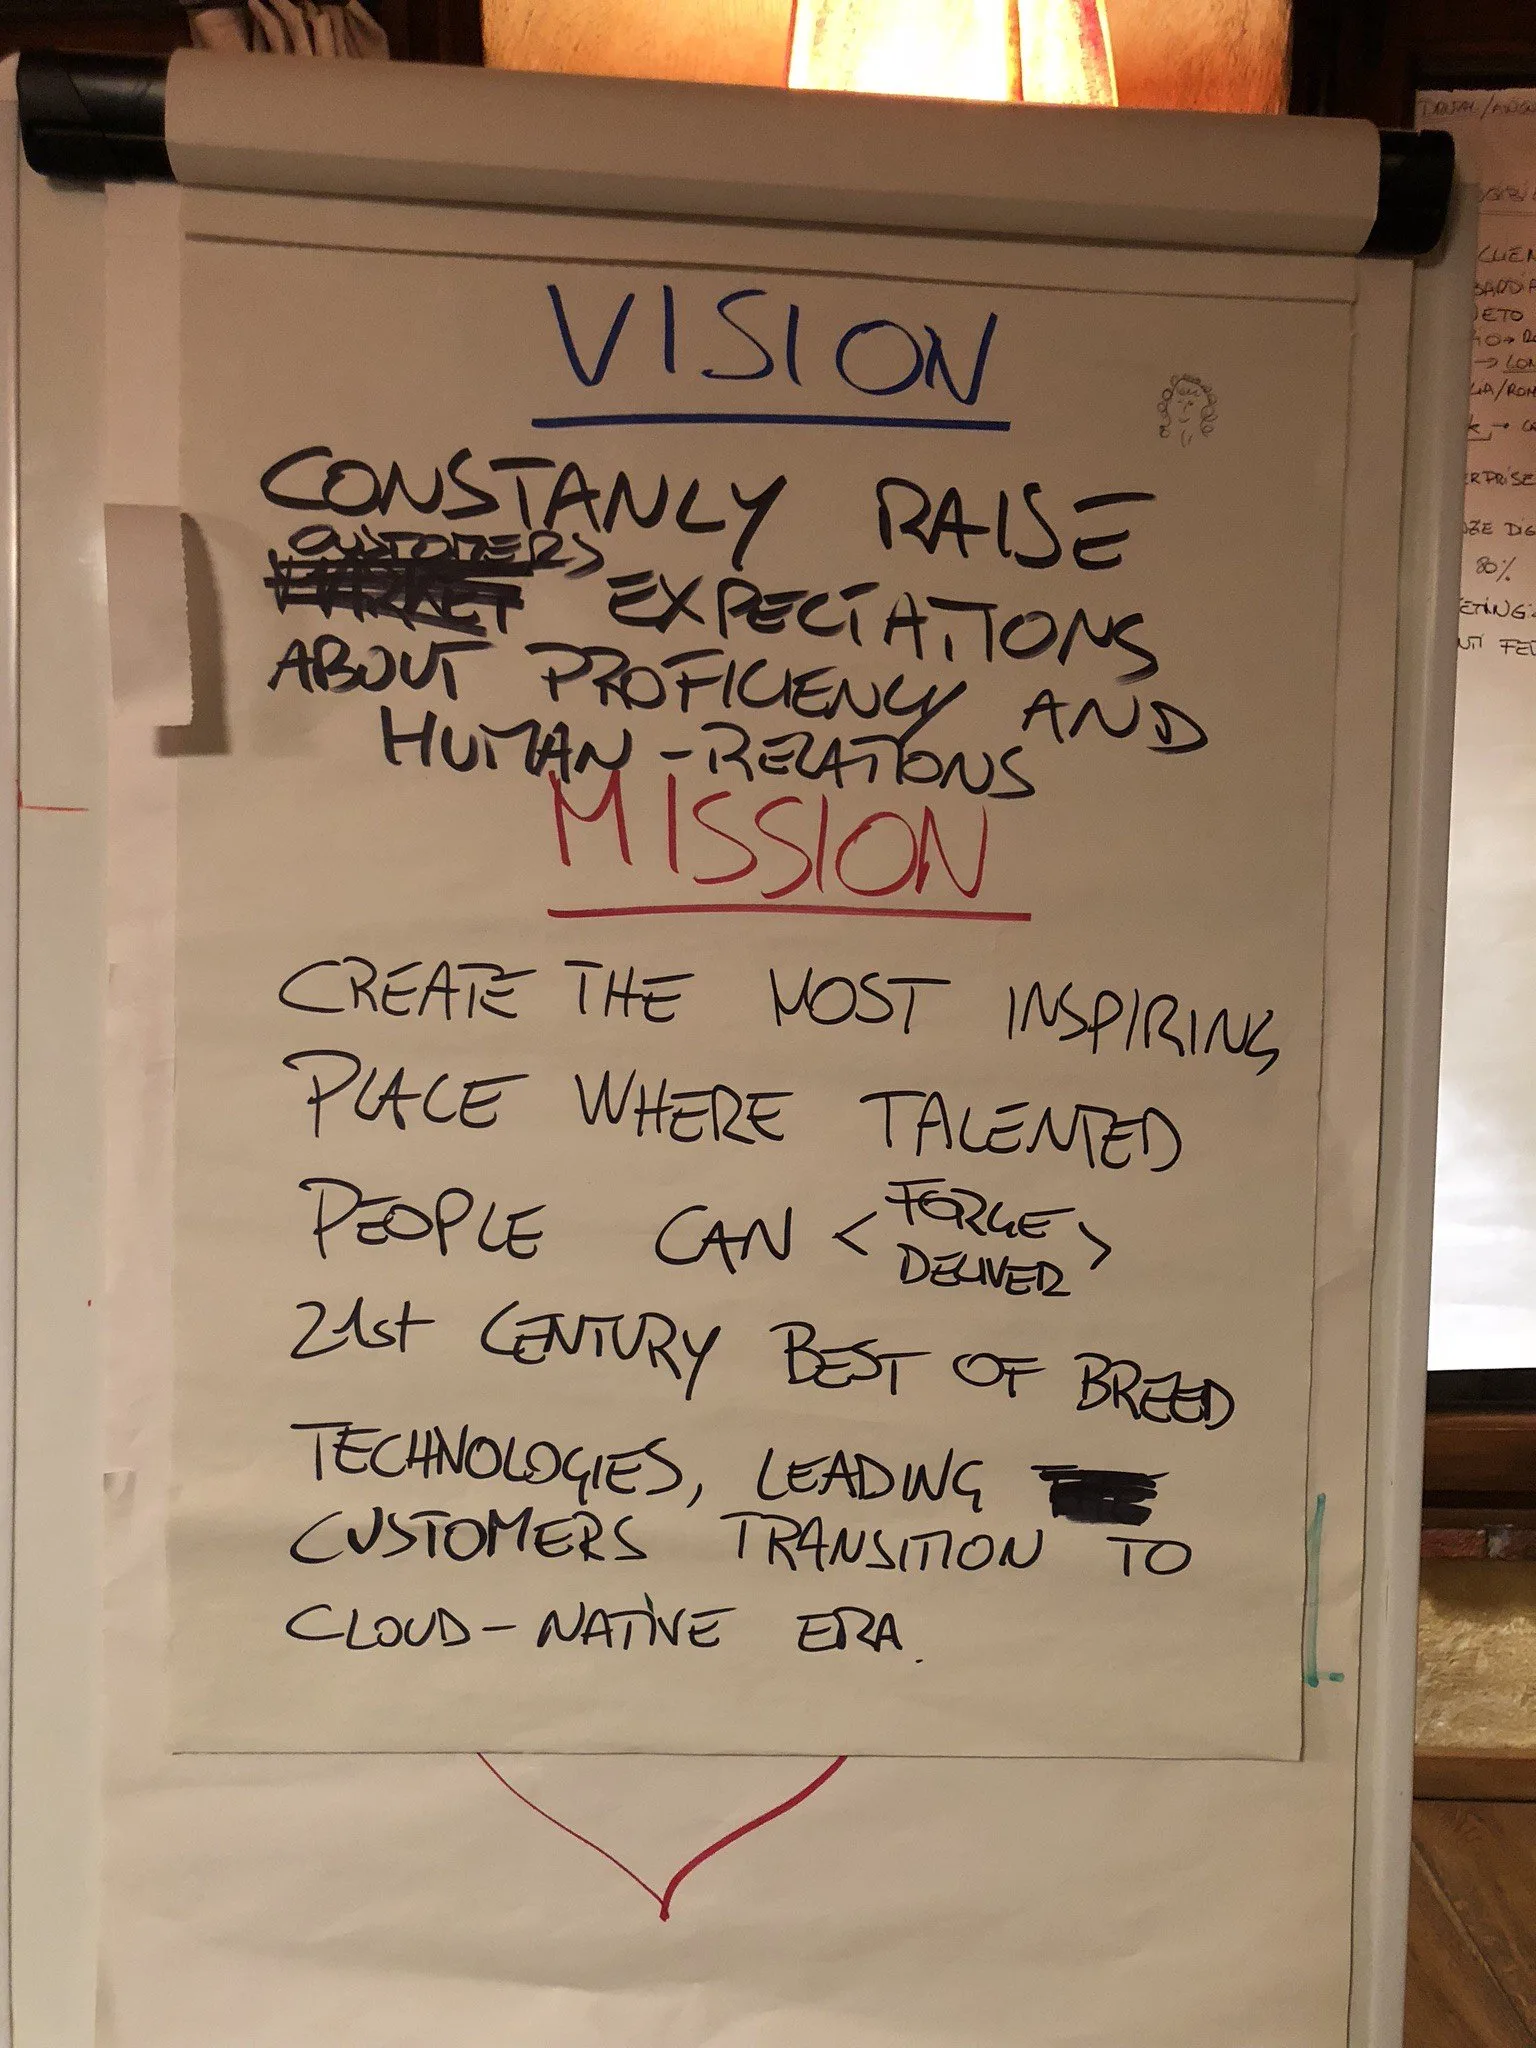 VISION
CONSTANLY RAISE
CUSTOMERS
MARKET EXPECTATIONS
ABOUT PROFICIENCY AND
HUMAN-RELATIONS
MISSION
CREATE THE MOST INSPIRING
PLACE WHERE TALENTED
PEOPLE CAN < FORGE >
DELIVER
21st CENTURY BEST OF BREED
TECHNOLOGIES, LEADING
CUSTOMERS TRANSITION TO
CLOUD-NATIVE ERA.
80%